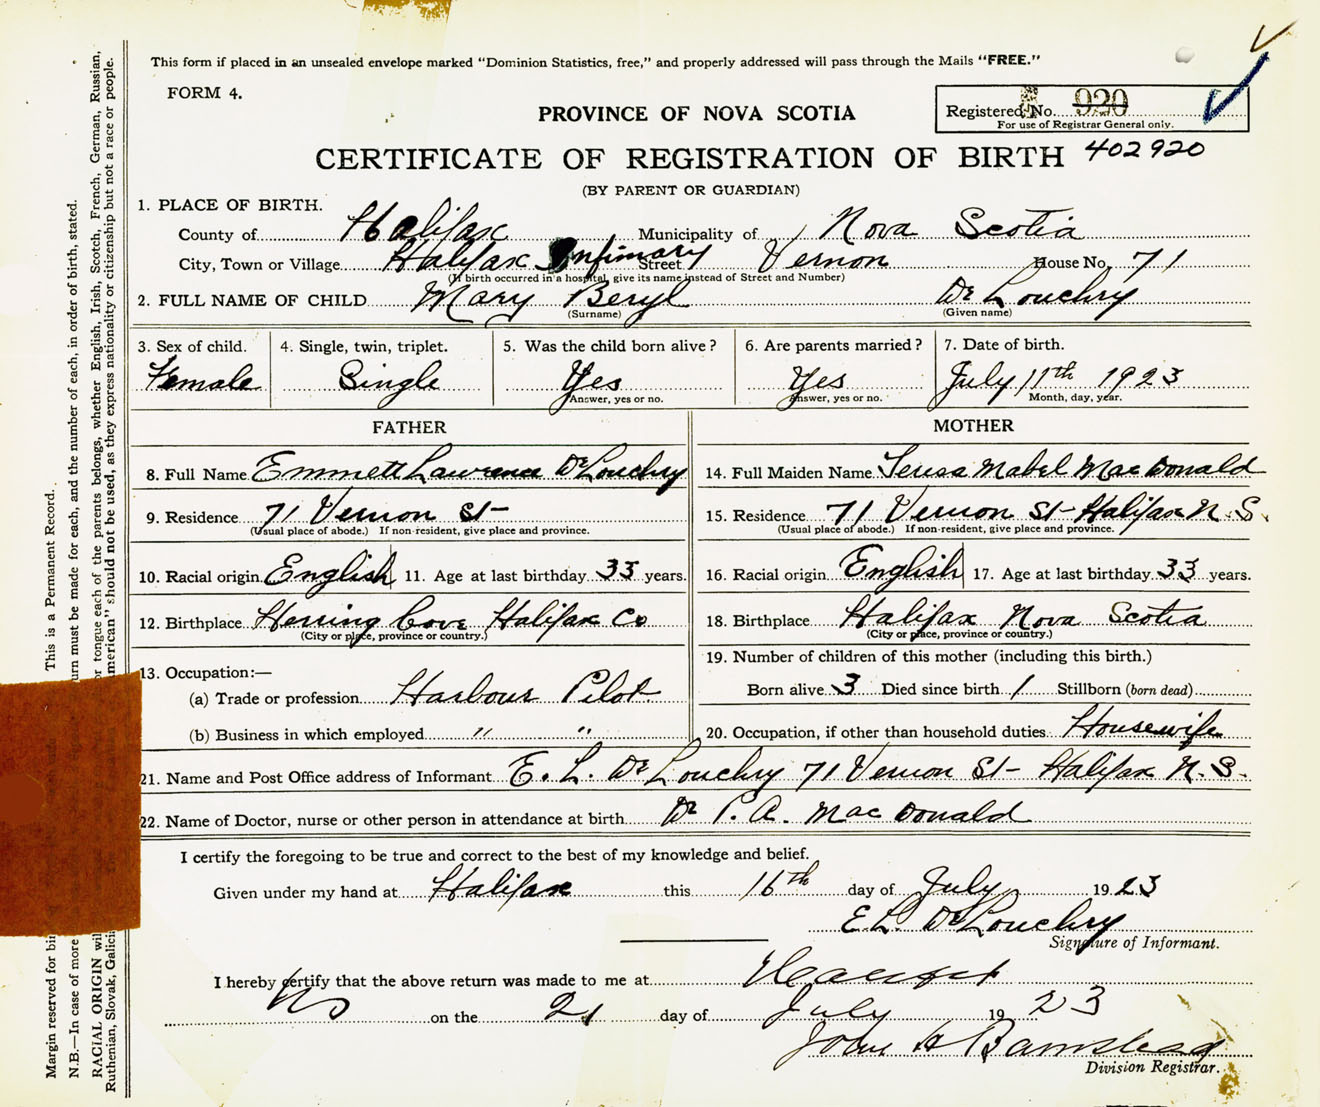 This form if placed in an unsealed envelope marked "Dominion Statistics, free," and properly addressed will pass through the Mails "FREE."
FORM 4.
PROVINCE OF NOVA SCOTIA
Registered No. 920
For use of Registrar General only.
CERTIFICATE OF REGISTRATION OF BIRTH 402920
(BY PARENT OR GUARDIAN)
1. PLACE OF BIRTH.
County of Halifax Municipality of Nova Scotia
City, Town or Village Halifax Infirmary Street Vernon House No. 71
(If birth occurred in a hospital, give its name instead of Street and Number)
2. FULL NAME OF CHILD Mary Beryl De Louchry
(Surname) (Given name)
3. Sex of child. 4. Single, twin, triplet. 5. Was the child born alive? 6. Are parents married? 7. Date of birth.
Female Single Yes Yes July 11th 1923
Answer, yes or no. Answer, yes or no. Month, day, year.
FATHER MOTHER
8. Full Name Emmett Lawrence De Louchry 14. Full Maiden Name Teresa Mabel MacDonald
9. Residence 71 Vernon St- 15. Residence 71 Vernon St- Halifax N.S.
(Usual place of abode.) If non-resident, give place and province. (Usual place of abode.) If non-resident, give place and province.
10. Racial origin English 11. Age at last birthday 33 years. 16. Racial origin English 17. Age at last birthday 33 years.
12. Birthplace Herring Cove Halifax Co 18. Birthplace Halifax Nova Scotia
(City or place, province or country.) (City or place, province or country.)
13. Occupation:— 19. Number of children of this mother (including this birth.)
(a) Trade or profession Harbour Pilot Born alive 3 Died since birth 1 Stillborn (born dead)
(b) Business in which employed " " 20. Occupation, if other than household duties. Housewife
21. Name and Post Office address of Informant E. L. De Louchry 71 Vernon St- Halifax N.S.
22. Name of Doctor, nurse or other person in attendance at birth Dr P. A. MacDonald
I certify the foregoing to be true and correct to the best of my knowledge and belief.
Given under my hand at Halifax this 16th day of July 1923
E.L. De Louchry
Signature of Informant.
I hereby certify that the above return was made to me at Halifax
NS on the 21 day of July 1923
John H Barnstead
Division Registrar.
Margin reserved for This is a Permanent Record.
N.B.—In case of more urn must be made for each, and the number of each, in order of birth, stated.
RACIAL ORIGIN or tongue each of the parents belongs, whether English, Irish, Scotch, French, German, Russian,
Ruthenian, Slovak, American" should not be used, as they express nationality or citizenship but not a race or people.